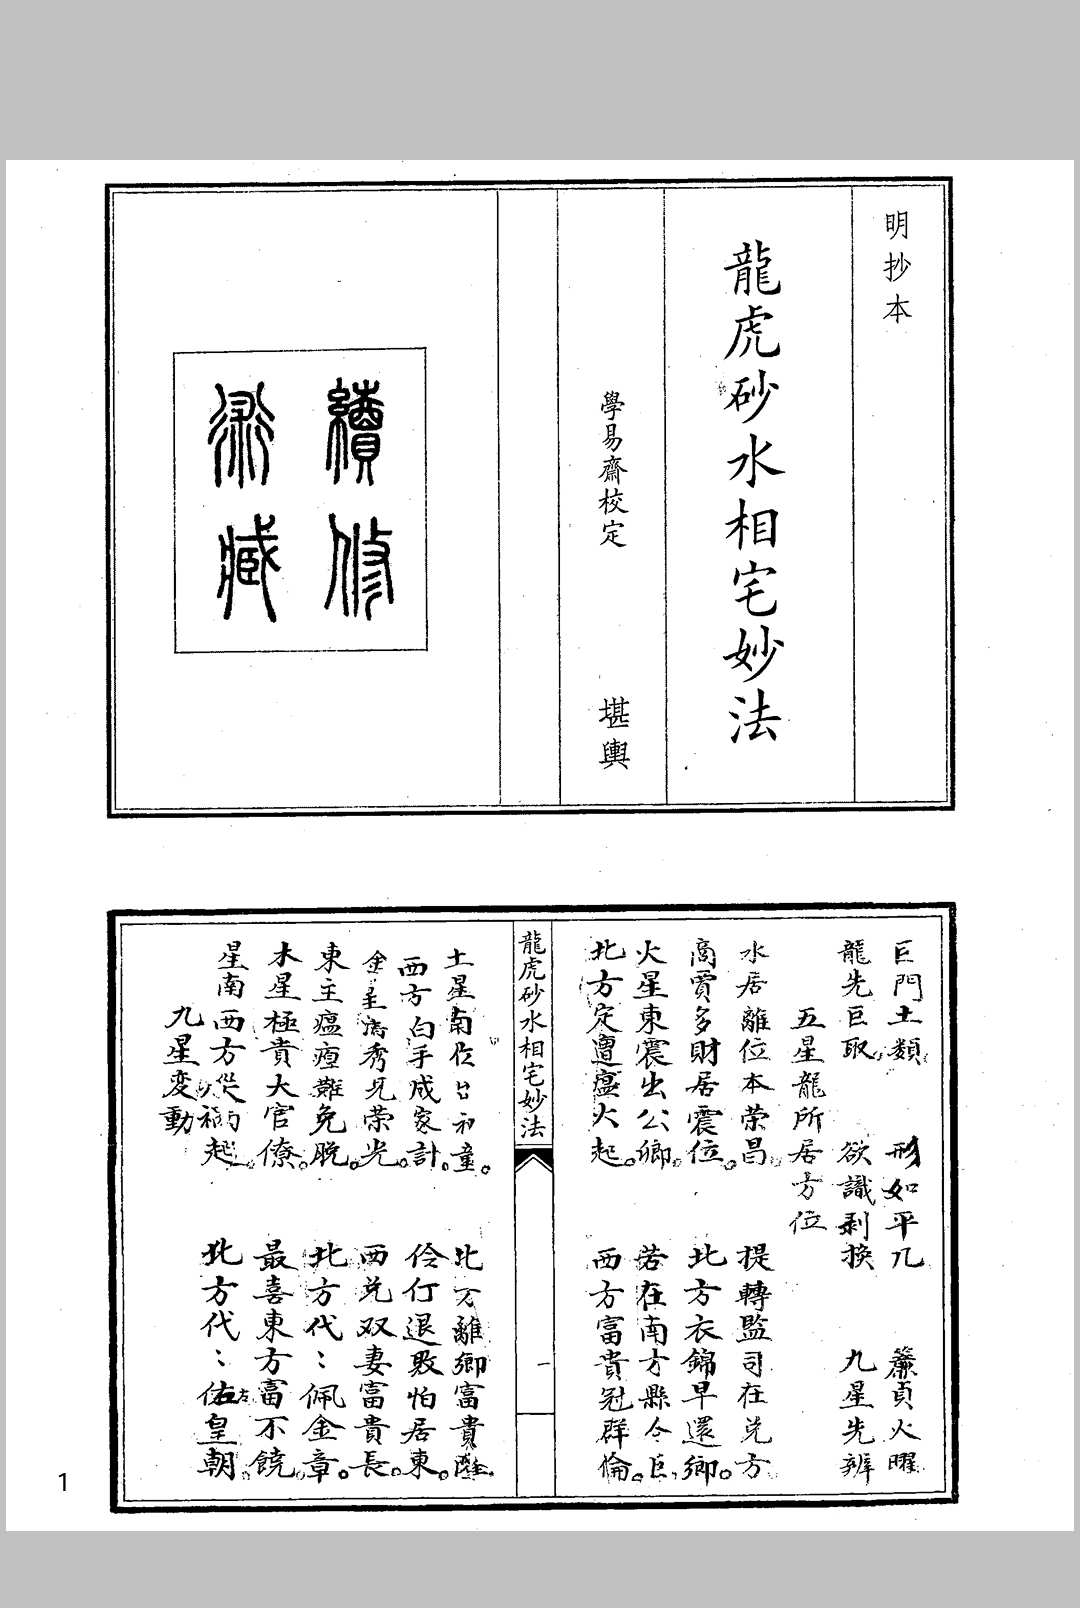 明抄本
龍虎砂水相宅妙法
學易齋校定 堪輿
續修
藏
巨門土類 形如平几 簾貞火曜
龍先巨取 欲識剥換 九星先辨
五星龍所居方位
水居離位本荣昌 提轉監司在兑方
商賈多財居震位 北方衣錦早還鄉
火星東震出公卿 若在南方縣令臣
北方定遭瘟火起 西方富貴冠群倫
龍虎砂水相宅妙法
一
土星南 童 北方離鄉富貴
西方白手成家計 伶仃退敗怕居東
金星 秀見荣光 西兑双妻富貴長
東主瘟 難免脱 北方代〻佩金章
木星極貴大官僚 最喜東方富不饒
星南西方從 起 北方代〻佑左皇朝
九星変動
1